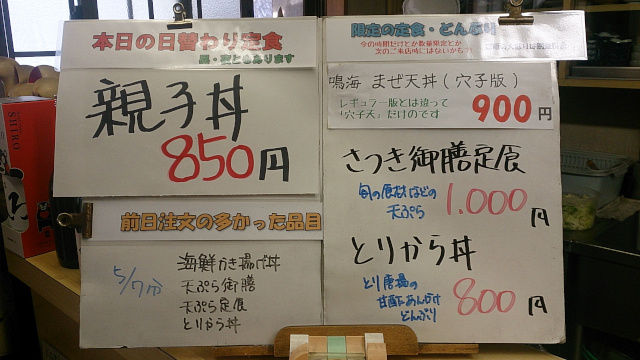 本日の日替わり定食
親子丼
850円
前日注文の多かった品目
5/7分
海鮮かき揚げ丼
天ぷら御膳
天ぷら定食
とりから丼
限定の定食・どんぶり
今の時期だけとか数量限定とか
次のご来店時にはないかも!
鳴海 まぜ天丼(穴子版)
レギュラー版とは違って
「穴子天」だけのです
900円
さつき御膳定食
旬の食材などの
天ぷら
1.000円
とりから丼
とり唐揚の
甘酢あんかけ
どんぶり
800円
SHIRO